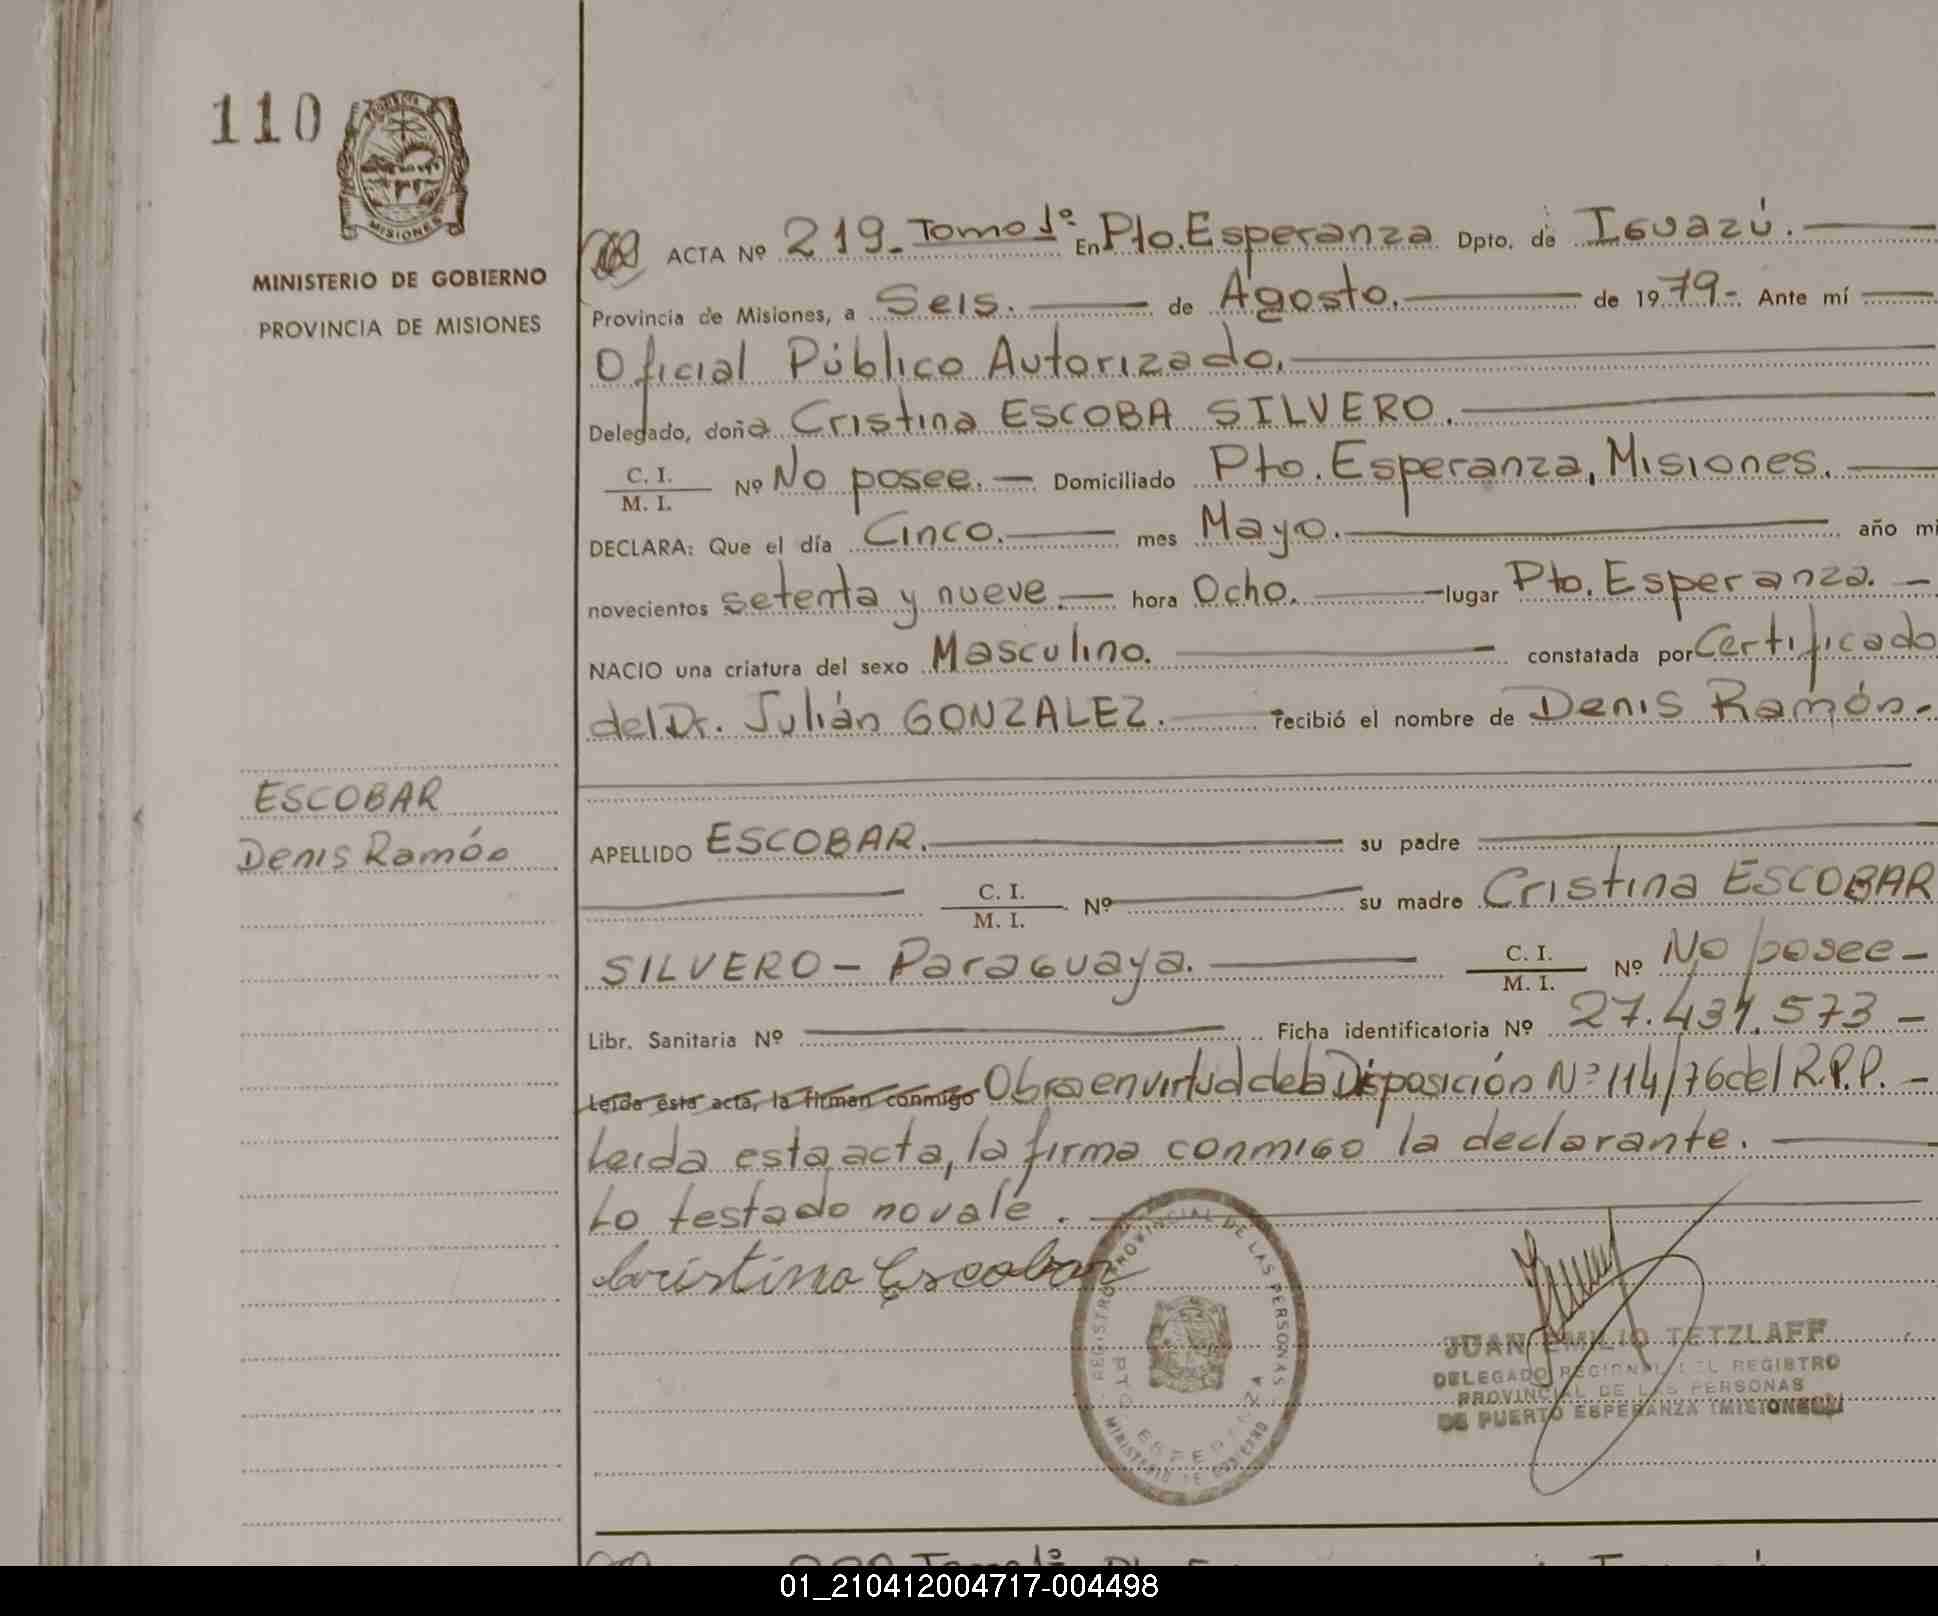 110
MISIONES
MINISTERIO DE GOBIERNO
PROVINCIA DE MISIONES
ACTA Nº 219_ Tomo 1º En Pto. Esperanza Dpto. de Iguazú.
Provincia de Misiones, a Seis. de Agosto. de 1979- Ante mí
Oficial Público Autorizado.
Delegado, doña Cristina ESCOBA SILVERO.
C. I.
M. I. Nº No posee. Domiciliado Pto. Esperanza, Misiones.
DECLARA: Que el día Cinco. mes Mayo. año mi
novecientos setenta y nueve. hora Ocho. lugar Pto. Esperanza.
NACIO una criatura del sexo Masculino. constatada por Certificado
del Dr. Julián GONZALEZ. recibió el nombre de Denis Ramón.-
ESCOBAR
Denis Ramón
APELLIDO ESCOBAR. su padre
C. I.
M. I. Nº su madre Cristina ESCOBAR
SILVERO - Paraguaya. C. I.
M. I. Nº No posee -
Libr. Sanitaria Nº Ficha identificatoria Nº 27.431.573 -
Leída esta acta, la firman conmigo Obra en virtud de la Disposición Nº 114/76 del R.P.P. -
Leida esta acta, la firma conmigo la declarante.
Lo testado no vale.
Cristina Escobar
REGISTRO PROVINCIAL DE LAS PERSONAS
PTO. ESPERANZA
MINISTERIO DE GOBIERNO
JUAN EMILIO TETZLAFF
DELEGADO REGIONAL DEL REGISTRO
PROVINCIAL DE LAS PERSONAS
DE PUERTO ESPERANZA (MISIONES)
01_210412004717-004498